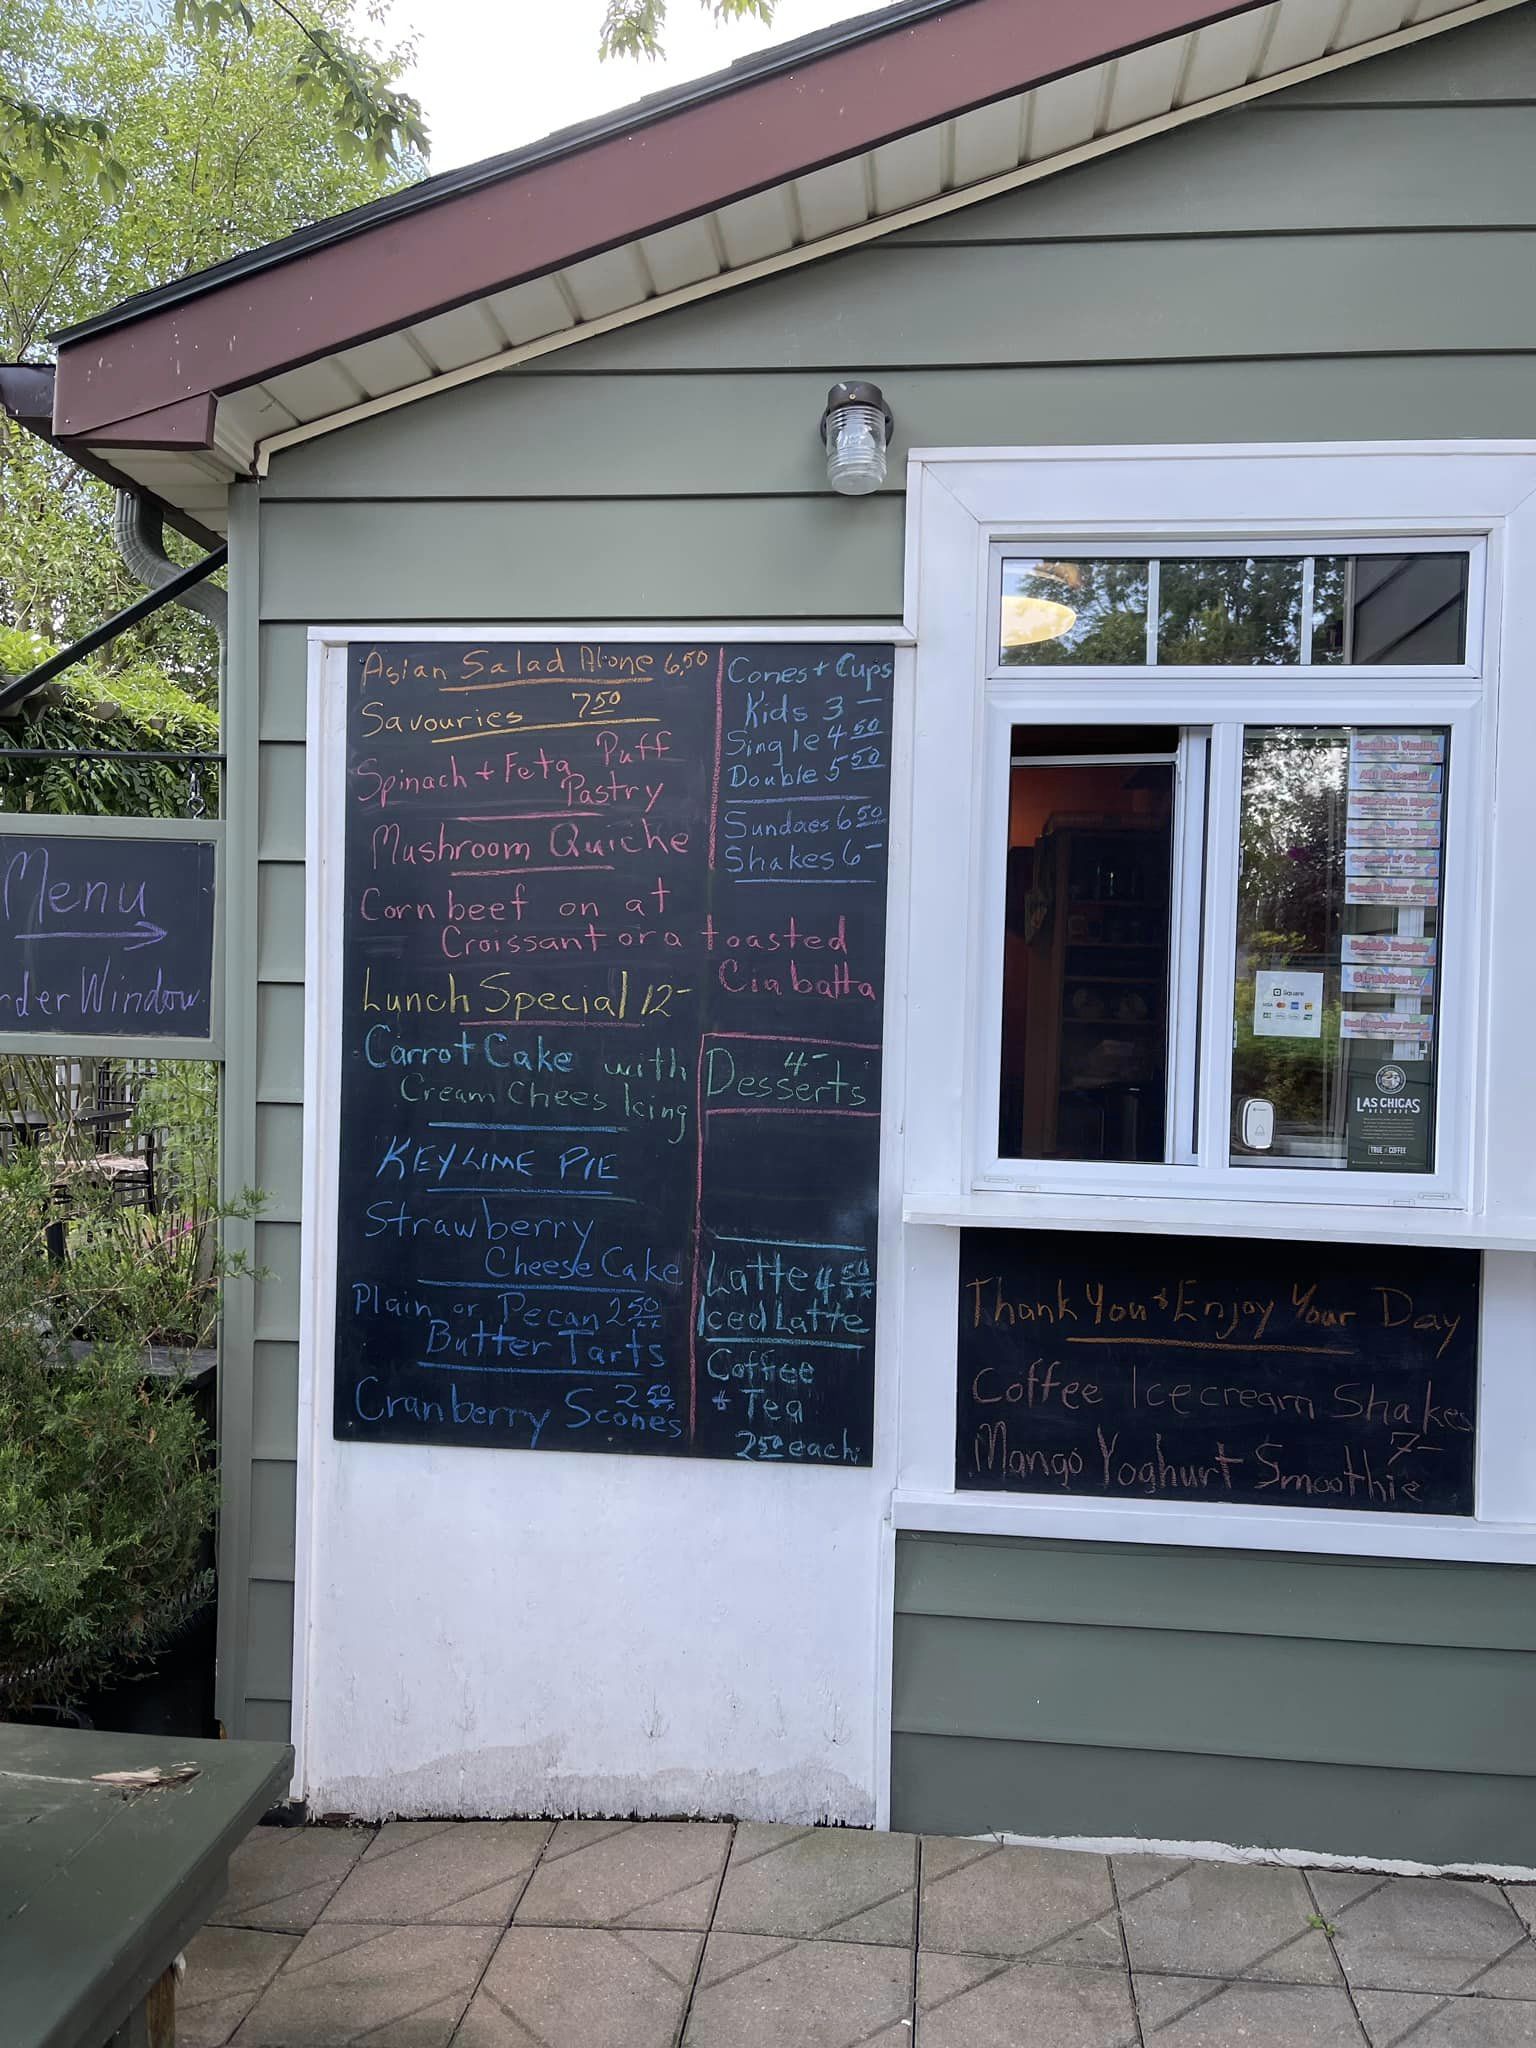 Asian Salad Alone 6.50
Savouries 7 50
Spinach + Feta Puff
Pastry
Mushroom Quiche
Cornbeef on at
Croissant or a toasted
Ciabatta
Lunch Special 12-
Carrot Cake with
Cream Chees Icing
KEY LIME PIE
Strawberry
Cheese Cake
Plain or Pecan 2 50
Butter Tarts
Cranberry Scones 2 50
Cones + Cups
Kids 3 -
Single 4 50
Double 5 50
Sundaes 6 50
Shakes 6 -
4-
Desserts
Latte 4 50
Iced Latte
Coffee
+ Tea
2 50 each
Menu
Window
Acadian Vanilla
Strawberry
Square
VISA
LAS CHICAS
DEL CAFE
TRUE COFFEE
Thank You & Enjoy Your Day
Coffee Icecream Shakes
7-
Mango Yoghurt Smoothie